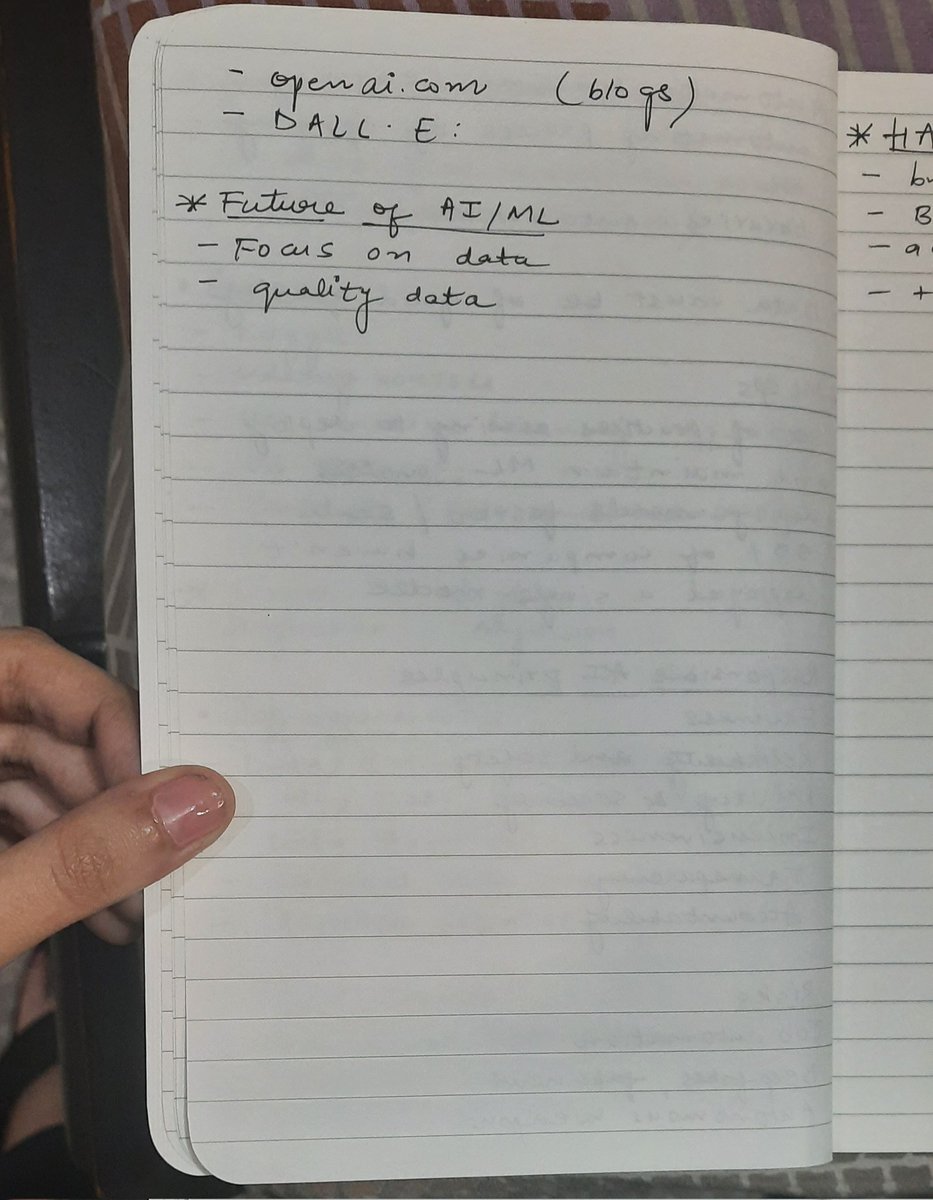 - openai.com (blogs)
- DALL·E:
* Future of AI/ML
- Focus on data
- quality data
* HA
- bu
- B
- a
- +